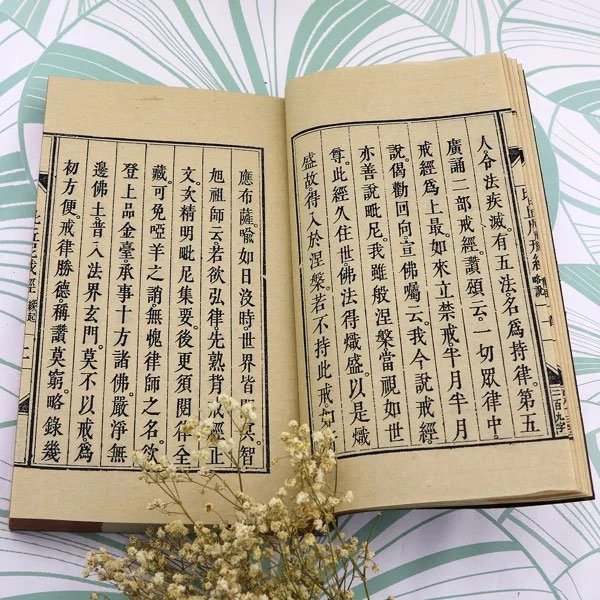 人。令法疾滅。有五法名爲持律。第五
廣誦二部戒經。讚頌云。一切眾律中。
戒經爲上最。如來立禁戒。半月半月
說。偈勸回向。宣佛囑云。我今說戒經。
亦善說毗尼。我雖般涅槃。當視如世
尊。此經久住世。佛法得熾盛。以是熾
盛故。得入於涅槃。若不持此戒。如
應布薩。喻如日沒時。世界皆冥。智
旭祖師云。若欲弘律。先熟背戒經止
文。次精明毗尼集要。後更須閱律全
藏。可免啞羊之誚。無愧律師之名。欲
登上品金臺。承事十方諸佛。嚴淨無
邊佛土。普入法界玄門。莫不以戒爲
初方便。戒律勝德。稱讚莫窮。略錄幾
戒經 緣起 二